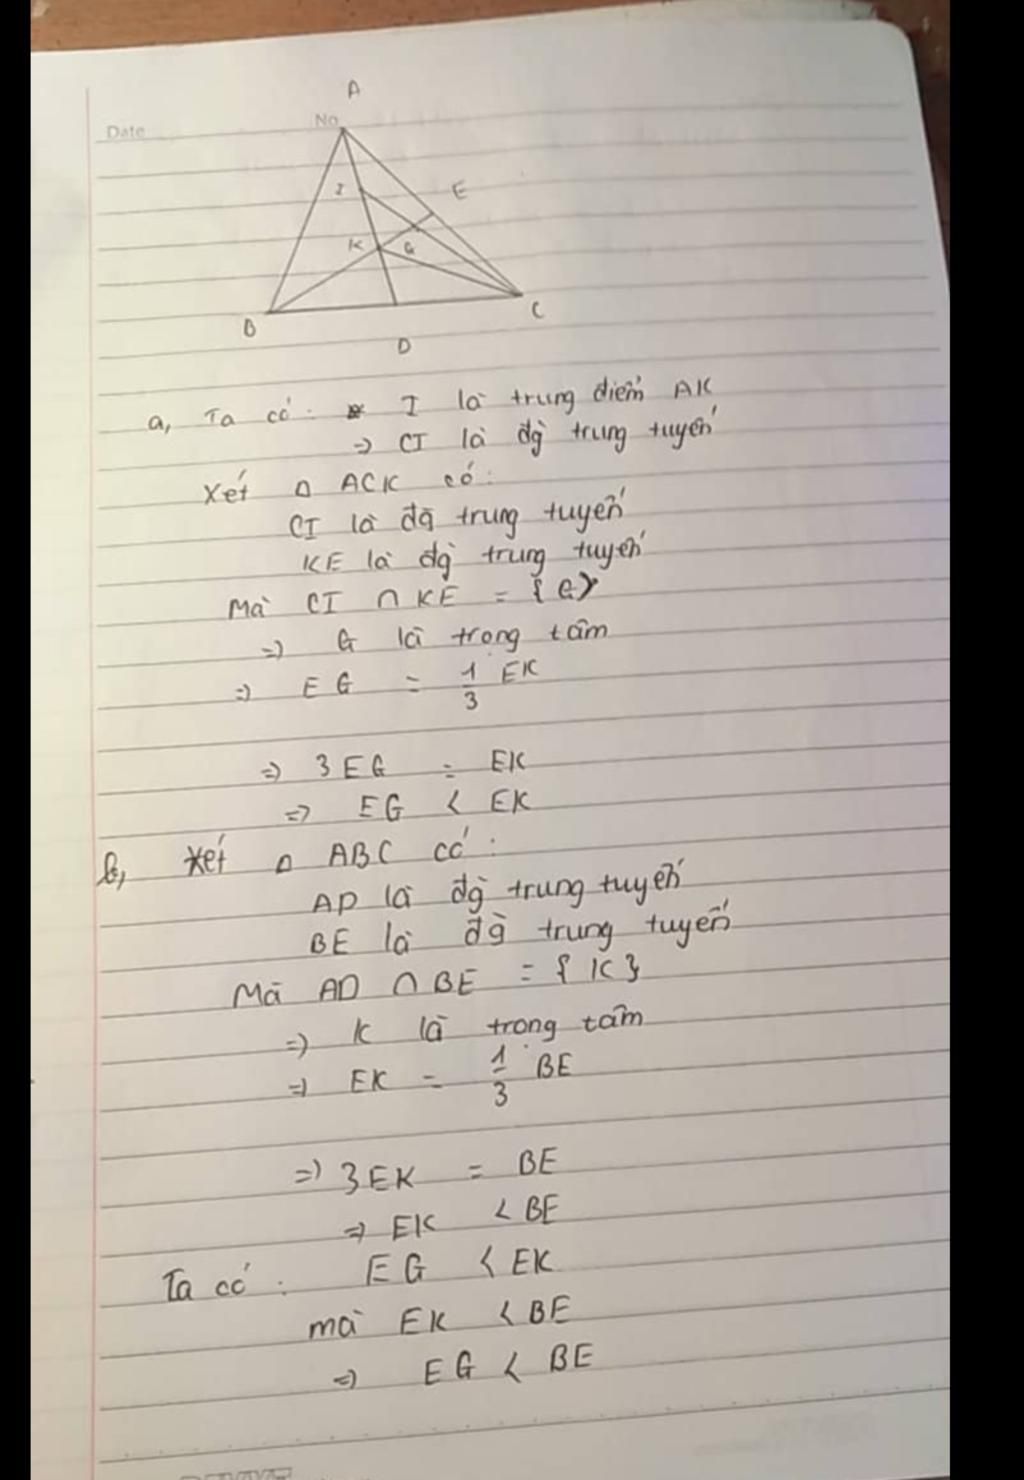 A
Date
No
I
E
K
G
B
C
D
a, Ta có: I là trung điểm AK
=> CI là đg` trung tuyến
Xét Δ ACK có:
CI là đg` trung tuyến
KE là đg` trung tuyến
Mà CI ∩ KE = {G}
=> G là trọng tâm
=> EG = 1/3 EK
=> 3EG = EK
=> EG < EK
b, Xét Δ ABC có:
AD là đg` trung tuyến
BE là đg` trung tuyến
Mà AD ∩ BE = {K}
=> K là trọng tâm
=> EK = 1/3 BE
=> 3EK = BE
=> EK < BE
Ta có: EG < EK
mà EK < BE
=> EG < BE